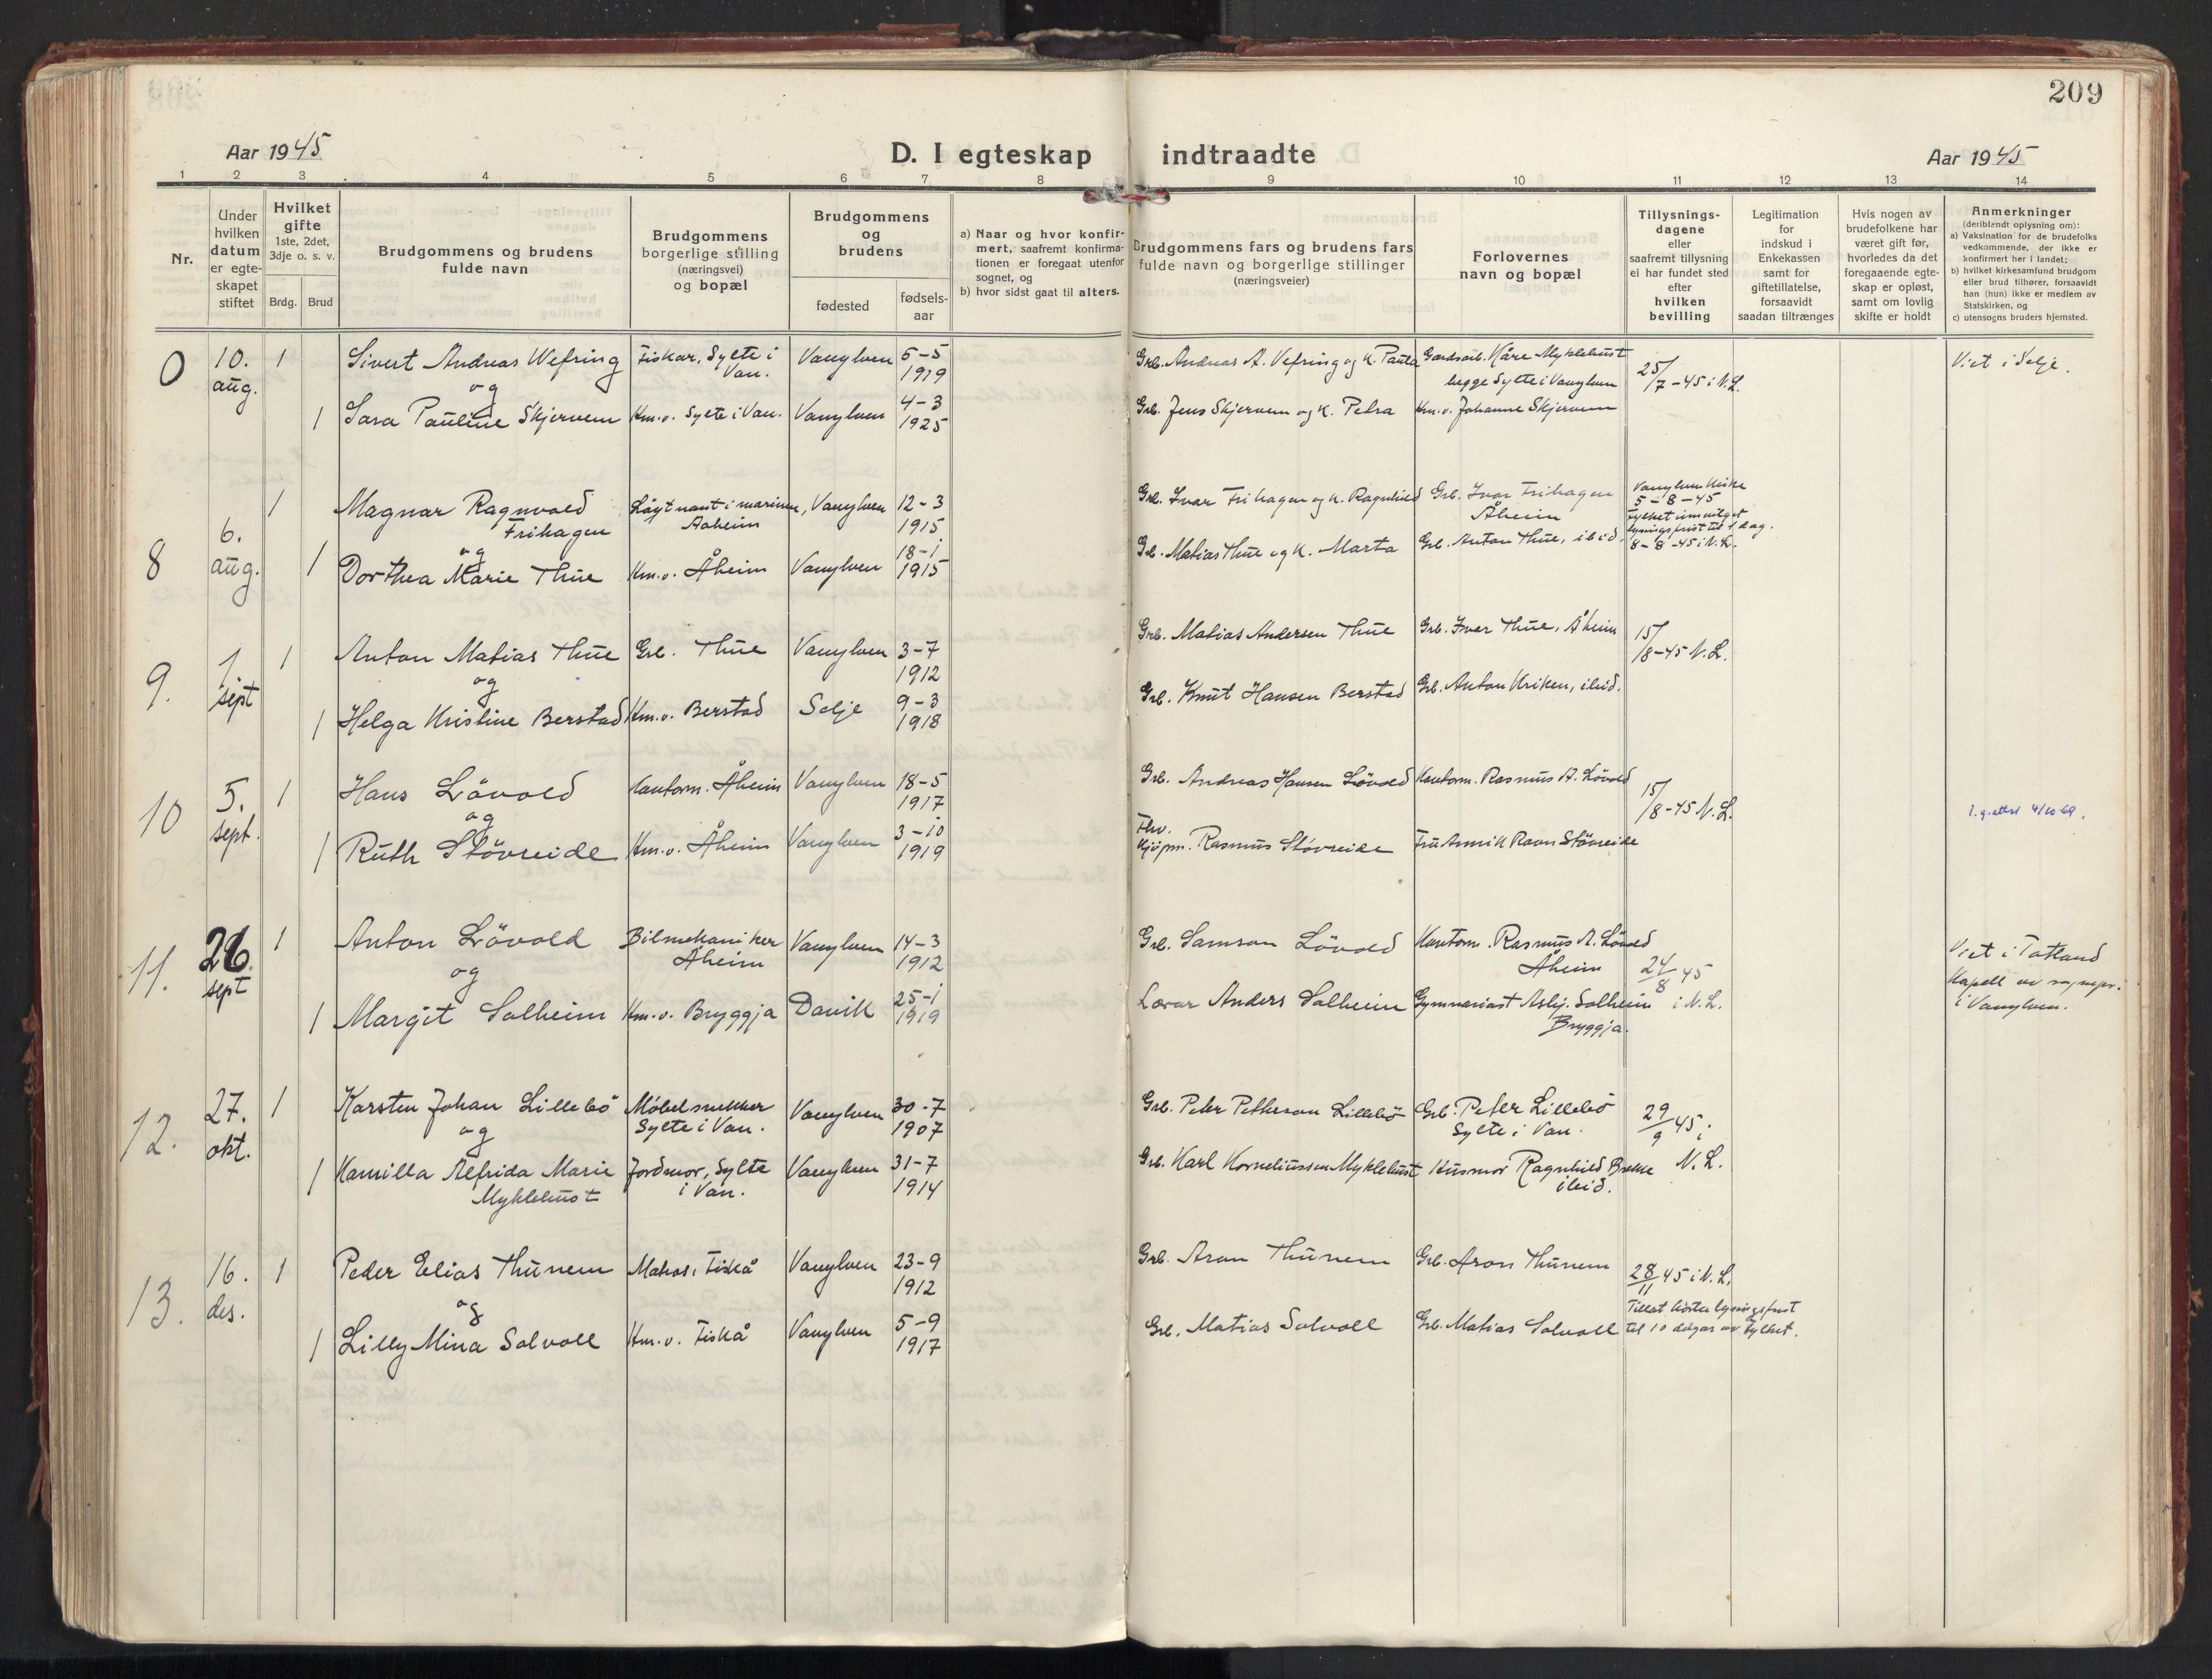 209
Aar 1945
D. I egteskap indtraadte
Aar 1945
1 2 3 4 5 6 7 8 9 10 11 12 13 14
Nr.
Under
hvilken
datum
er egte-
skapet
stiftet
Hvilket
gifte
1ste, 2det,
3dje o. s. v.
Brdg. Brud
Brudgommens og brudens
fulde navn
Brudgommens
borgerlige stilling
(næringsvei)
og bopæl
Brudgommens
og
brudens
fødested
fødsels-
aar
a) Naar og hvor konfir-
mert, saafremt konfirma-
tionen er foregaat utenfor
sognet, og
b) hvor sidst gaat til alters.
Brudgommens fars og brudens fars
fulde navn og borgerlige stillinger
(næringsveier)
Forlovernes
navn og bopæl
Tillysnings-
dagene
eller
saafremt tillysning
ei har fundet sted
efter
hvilken
bevilling
Legitimation
for
indskud i
Enkekassen
samt for
giftetillatelse,
forsaavidt
saadan tiltrænges
Hvis nogen av
brudefolkene har
været gift før,
hvorledes da det
foregaaende egte-
skap er opløst,
samt om lovlig
skifte er holdt
Anmerkninger
(deriblendt oplysning om):
a) Vaksination for de brudefolks
vedkommende, der ikke er
konfirmert her i landet;
b) hvilket kirkesamfund brudgom
eller brud tilhører, forsaavidt
han (hun) ikke er medlem av
Statskirken, og
c) utensogns bruders hjemsted.
0 10. aug. 1 Sivert Andreas Wefring Fiskar, Sylte i Van. Vanylven 5-5 1919 Grb. Andreas A. Vefring og K. Paula Gardsarb. Kåre Myklebust begge Sylte i Vanylven 25/7-45 i N.L. Viet i Selje.
og
1 Sara Pauline Skjervem Hm.v. Sylte i Van. Vanylven 4-3 1925 Grb. Jens Skjervem og K. Petra Hm.v. Johanne Skjervem
8 6. aug. 1 Magnar Ragnvald Frihagen Løytnant i marinen, Aaheim Vanylven 12-3 1915 Grb. Ivar Frihagen og K. Ragnhild Grb. Ivar Frihagen Åheim Vanylven kirke 5-8-45 Fylket innvilget lysingsfrist til 1 dag. 8-8-45 i N.L.
og
1 Dorthea Marie Thue Hm.v. Åheim Vanylven 18-1 1915 Grb. Matias Thue og K. Marta Grb. Anton Thue, ibid.
9. 1. sept 1 Anton Matias Thue Grb. Thue Vanylven 3-7 1912 Grb. Matias Andersen Thue Grb. Ivar Thue, Åheim 15/8-45 N.L.
og
1 Helga Kristine Berstad Hm.v. Berstad Selje 9-3 1918 Grb. Knut Hansen Berstad Grb. Anton Kriken, ibid.
10 5. sept. 1 Hans Lövold Kontorm. Åheim Vanylven 18-5 1917 Grb. Andreas Hansen Lövold Kontorm. Rasmus A. Lövold 15/8-45 N.L.
og
1 Ruth Stövreide Hm.v. Åheim Vanylven 3-10 1919 Fhv. kjöpm. Rasmus Stövreide Fru Annik Ravn Stövreide
11. 26. sept 1 Anton Lövold Bilmekaniker Åheim Vanylven 14-3 1912 Grb. Samson Lövold Kontorm. Rasmus A. Lövold Åheim 24/8 45 i N.L. Viet i Totland Kapell av sognepr. i Vanylven.
og
1 Margit Solheim Hm.v. Bryggja Davik 25-1 1919 Lærar Anders Solheim Gymnasiast Asbj. Solheim Bryggja.
12. 27. okt. 1 Karsten Johan Lillebö Möbelsnekker Sylte i Van. Vanylven 30-7 1907 Grb. Peter Petterson Lillebö Grb. Peter Lillebö Sylte i Van. 29/9 45 i N.L.
og
1 Kamilla Alfrida Marie Myklebust Jordmor, Sylte i Van. Vanylven 31-7 1914 Grb. Karl Korneliussen Myklebust Husmor Ragnhild Brekke ibid.
13. 16. des. 1 Peder Elias Thunem Matros, Fiskå Vanylven 23-9 1912 Grb. Aron Thunem Grb. Aron Thunem 28/11 45 i N.L. Tillat korta lysingsfrist til 10 dagar av fylket.
og
1 Lilly Mina Solvoll Hm.v. Fiskå Vanylven 5-9 1917 Grb. Matias Solvoll Grb. Matias Solvoll